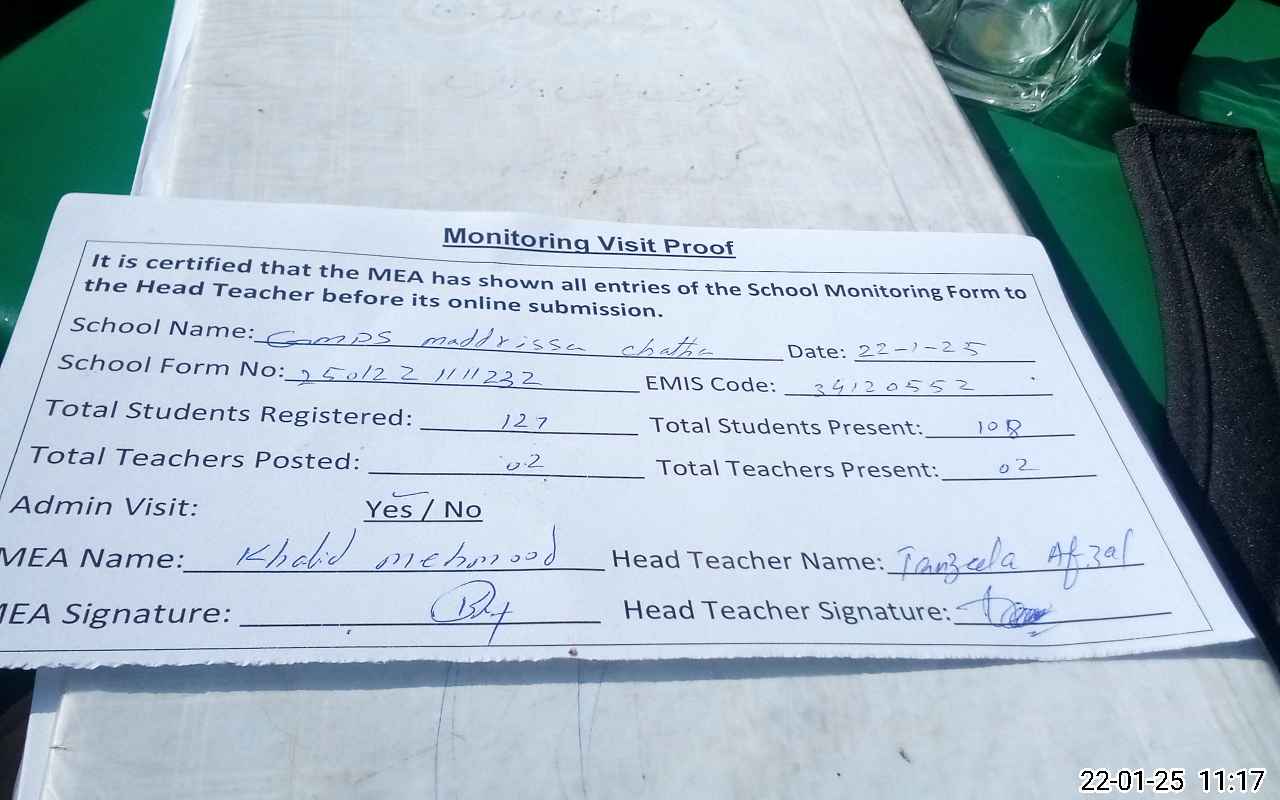 Monitoring Visit Proof
It is certified that the MEA has shown all entries of the School Monitoring Form to
the Head Teacher before its online submission.
School Name: GMPS maddrissa chatha Date: 22-1-25
School Form No: 250122 1111232 EMIS Code: 34120552
Total Students Registered: 127 Total Students Present: 108
Total Teachers Posted: 02 Total Teachers Present: 02
Admin Visit: Yes / No
MEA Name: Khalid mehmood Head Teacher Name: Tanzeela Afzal
MEA Signature: Head Teacher Signature:
22-01-25 11:17